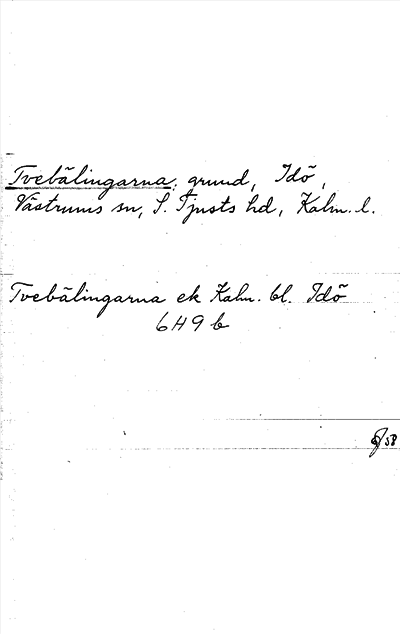 Tvebälingarna, grund, Idö,
Västrums sn, S. Tjusts hd, Kalm. l.
Tvebälingarna ek Kalm. bl. Idö
6H9b
58